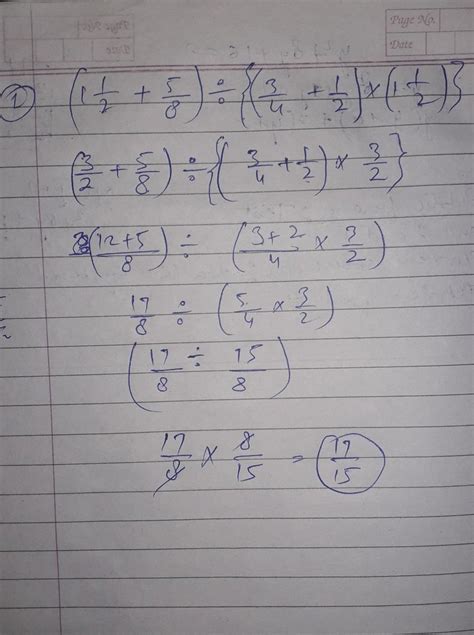 Page No.
Date
① (1 1/2 + 5/8) ÷ {(3/4 + 1/2) × (1 1/2)}
(3/2 + 5/8) ÷ {(3/4 + 1/2) × 3/2}
((12+5)/8) ÷ ((3+2)/4 × 3/2)
17/8 ÷ (5/4 × 3/2)
(17/8 ÷ 15/8)
17/8 × 8/15 = 17/15